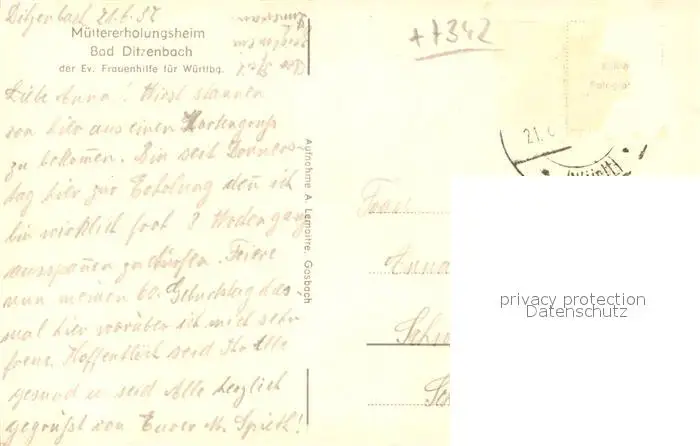 Ditzenbach 21.6.57
Müttererholungsheim
Bad Ditzenbach
der Ev. Frauenhilfe für Württbg.
+7342
Liebe Anna! Wirst staunen
von hier aus einen Kartengruß
zu bekommen. Bin seit Donners-
tag hier zur Erholung denn ich
bin wirklich froh 3 Wochen ganz
ausspannen zu dürfen. Feiere
nun meinen 60. Geburtstag dies-
mal hier worüber ich mich sehr
freue. Hoffentlich seid Ihr Alle
gesund u. seid Alle herzlich
gegrüßt von Eurer M. Spieth!
Aufnahme A. Lemaitre, Gosbach
21.6
(Württ)
Frau
Anna
privacy protection
Datenschutz